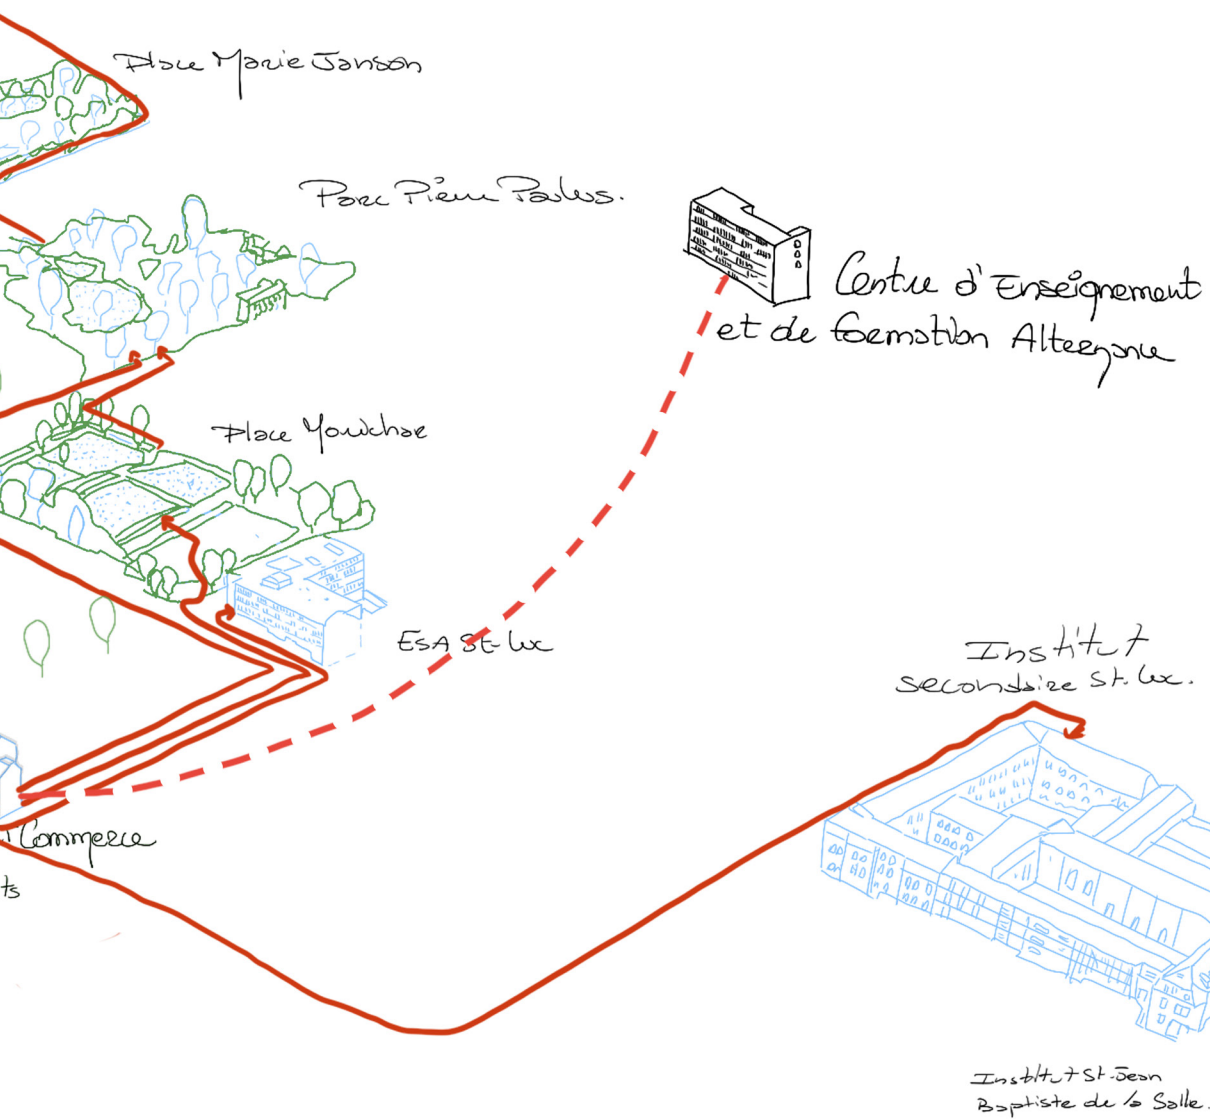 Place Marie Janson
Parc Pierre Paulus.
Centre d'Enseignement
et de formation Alternance
Place Morichar
ESA St-Luc
Institut
secondaire St. Luc.
Commerce
ts
Institut St-Jean
Baptiste de la Salle.